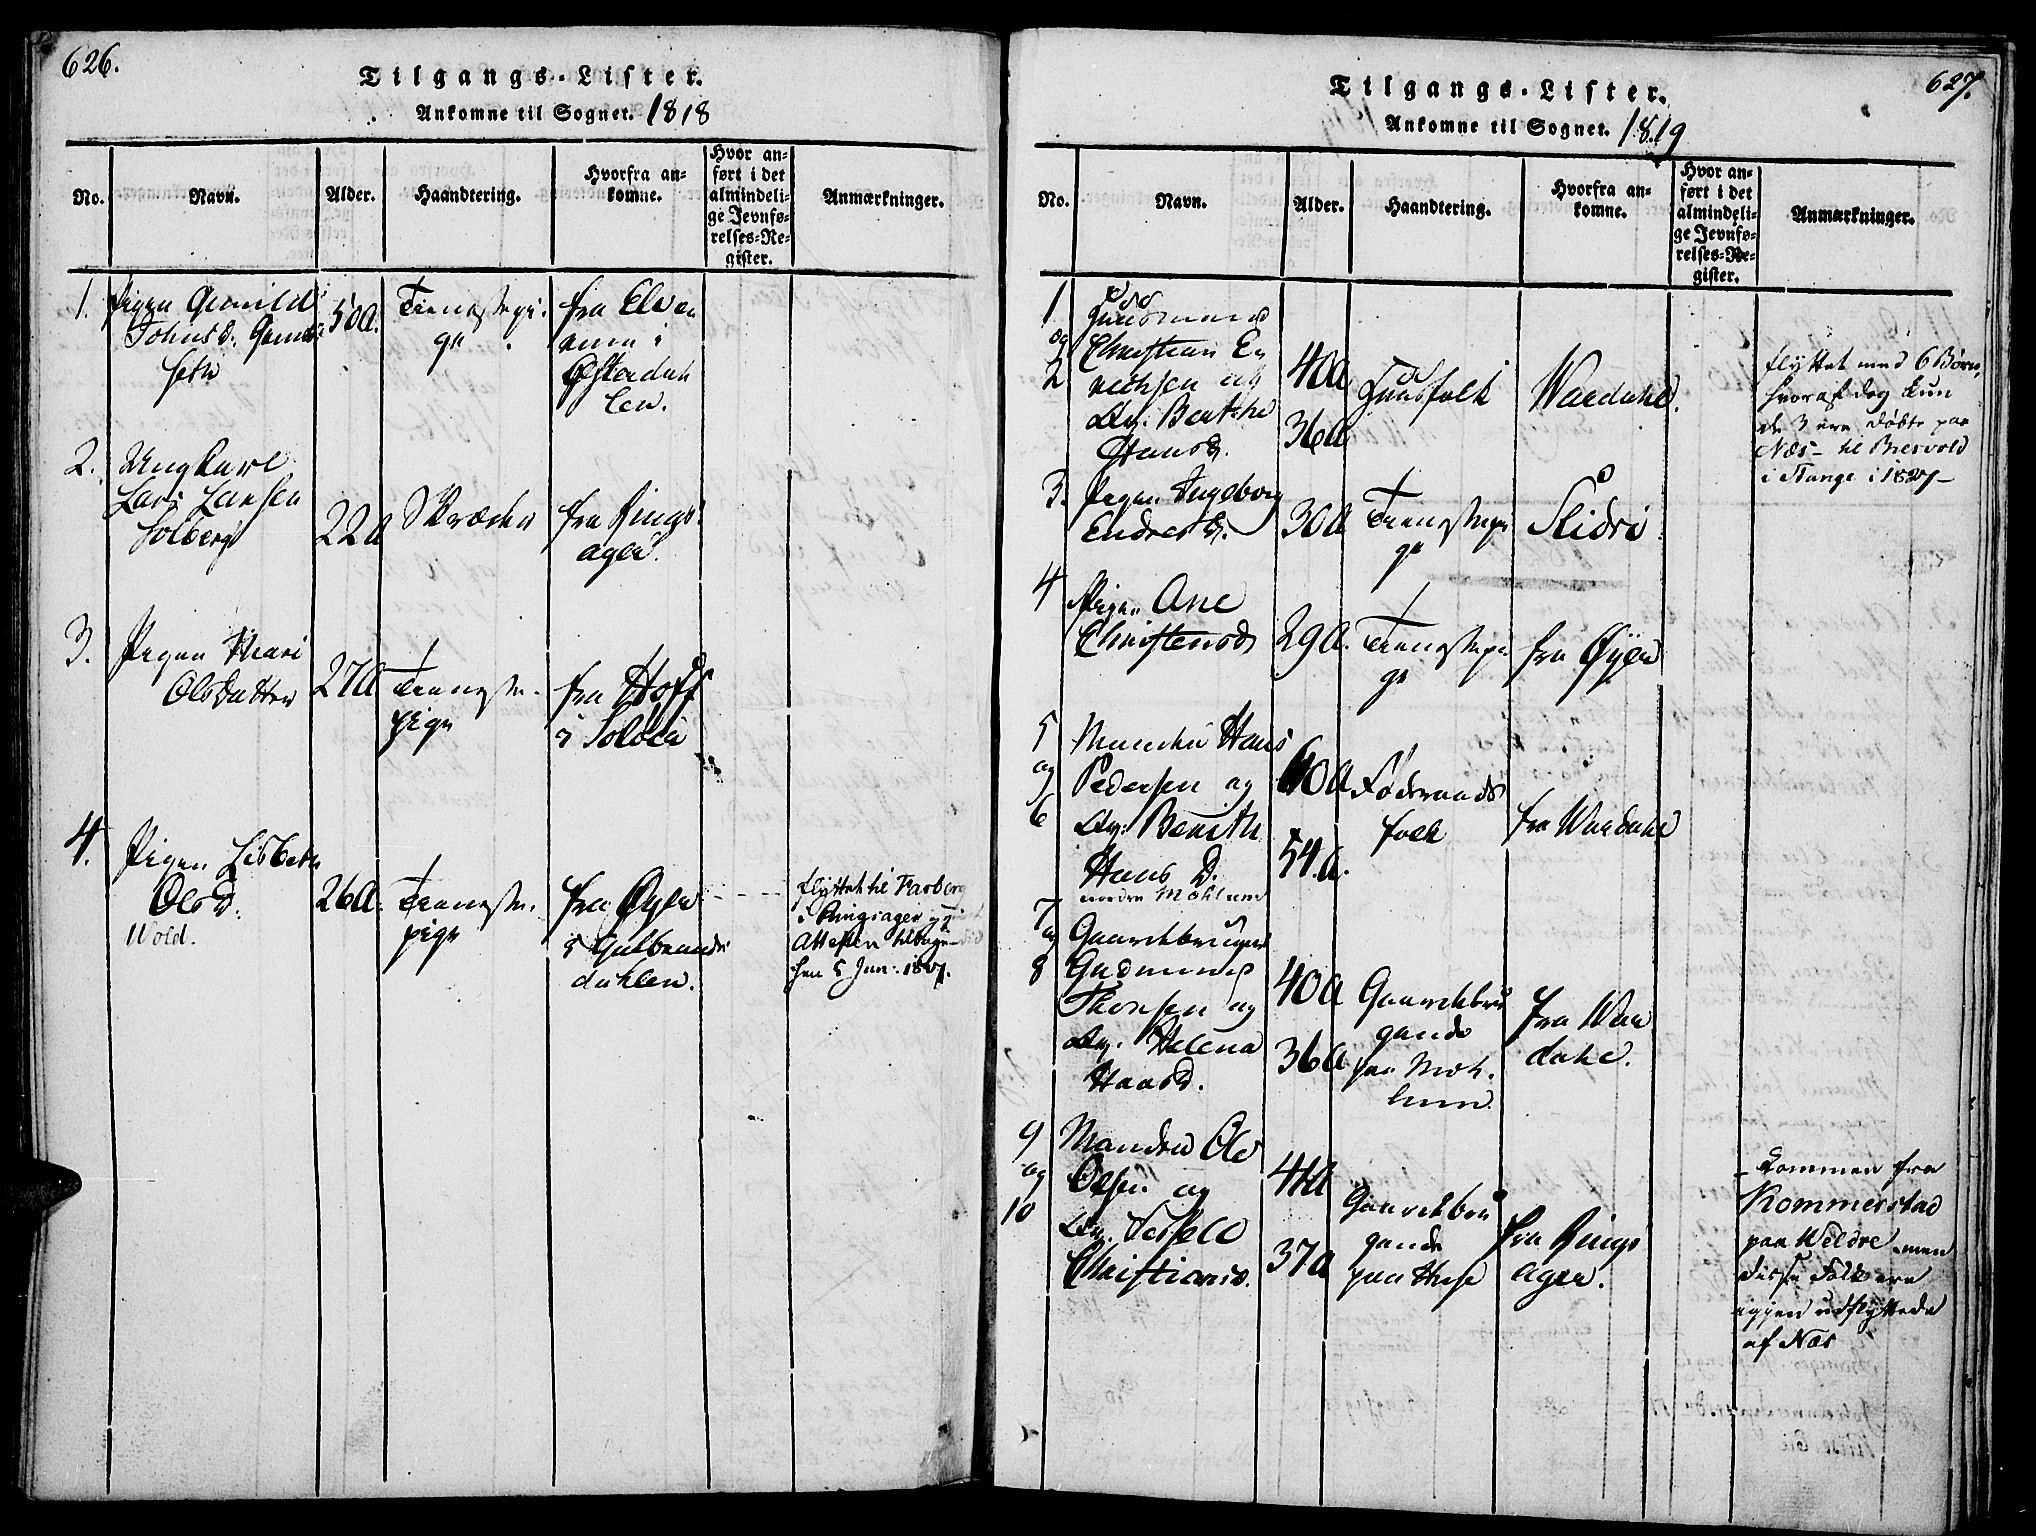 626.
Tilgangs-Lister.
Ankomne til Sognet. 1818
No.
Navn.
Alder.
Haandtering.
Hvorfra an-
komne.
Hvor an-
ført i det
almindeli-
ge Jevnfø-
relses-Re-
gister.
Anmærkninger.
1.
Pigen Gunild
Johnsd:
50 A.
Tieneste pi-
ge
fra Elve
rum i
Østerdah
len.
2.
Ungkarl
Lars Larsen
Solberg
22 A
Skræder
fra Rings-
ager.
3.
Pigen Mari
Olsdatter
27 A
Tieneste-
pige
fra Hoff
i Soløer
4.
Pigen Lisbeth
Ols D.
Wold.
26 A.
Tieneste-
pige
fra Øyer
i Gulbrands-
dahlen.
flyttet til Farberg
i Ringsager og
Attesten tilbage-
5 Jun: 1827.
627.
Tilgangs-Lister.
Ankomne til Sognet. 1819
No.
Navn.
Alder.
Haandtering.
Hvorfra an-
komne.
Hvor an-
ført i det
almindeli-
ge Jevnfø-
relses-Re-
gister.
Anmærkninger.
1
og
2
Huusmand
Christian En
gebretsen og
Berthe
Hansd.
40 A
36 A
Huusfolk
Wardahl.
flyttet med 6 Børn,
hvoraf dog kun
de 3 ere døbte paa
Næs - til
i Stange i 1827 -
3.
Pigen Ingeborg
Endresd.
30 A
Tienestepi
ge
Slidri
4
Pigen Ane
Christensd
29 A.
Tienestepi
ge
fra Øyer
5
og
6
Manden Hans
Pedersen og
Berrith
Hans D.
60 A
54. A.
Føderaads
folk
fra Wardahl
7
og
8
nordre Möhlum
Gaardbruger
Gudmund
Thorsen og
Helena
Hansd.
40 A
36 A
Gaardbru
gende
paa Möh-
lum
fra War
dahl.
9
og
10
Manden Ole
Olsen og
Christians.
41 A
37 A
Gaardbru
gende
paa
fra Rings
ager.
- kommen fra
Kommerstad
paa Weldre - men
disse Folk ere
igjen udflyttede
af Næs